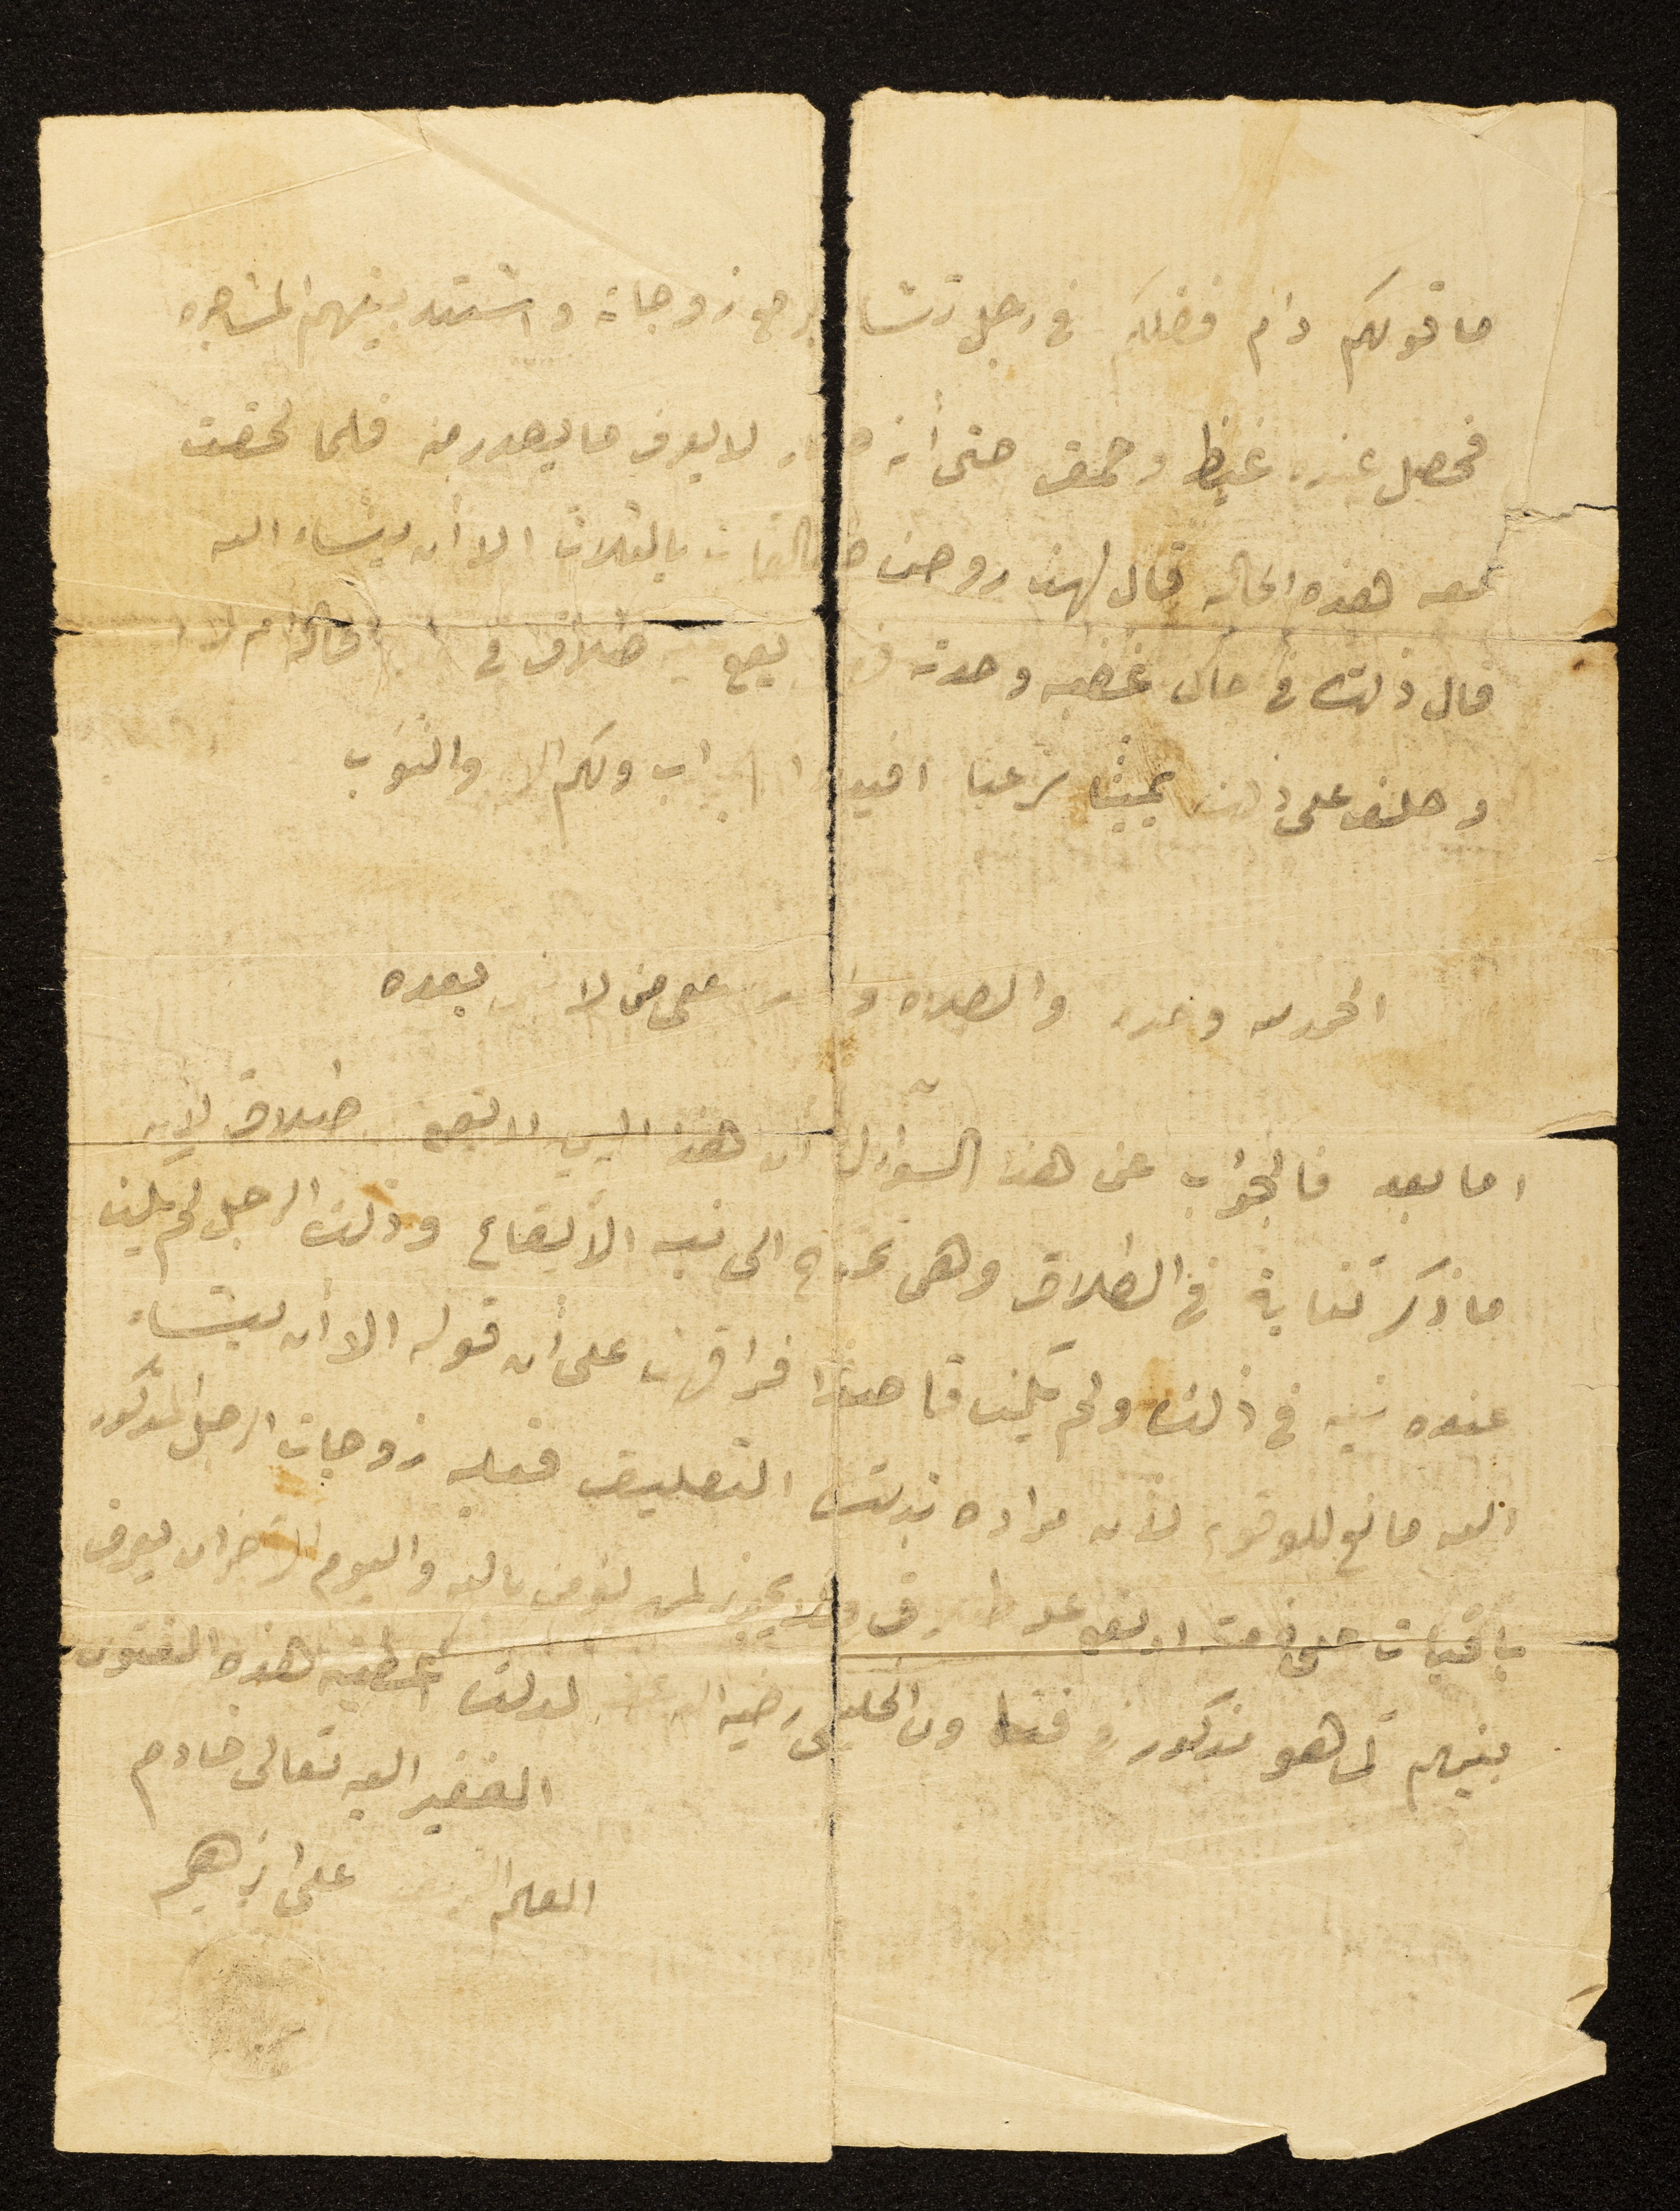 ما قولكم دام فضلكم في رجل تشاجر مع زوجاته واشتد بينهم المشاجره
فحصل عنده غيظ وحمق حتى أنه صار لا يعرف ما يصدر منه فلما لحقت
معه هذه الحاله قال لهن روحن طالقات بالثلاث الا أن يشاء الله
قال ذلك في حال غضبه وحدته فهل يقع طلاق في الحاله ام لا
وحلف على ذلك يمينا شرعيا افيدوا الجواب ولكم الاجر والثواب
الحمد لله وحده والصلاه والسلام على من لا نبي بعده
اما بعد فالجواب عن هذا السؤال أن هذا اليمين لا يقع طلاق لأن
ما ذكر كناية في الطلاق وهي تحتاج الى نيه الأيقاع وذلك الرجل لم يكن
عنده نيه في ذلك ولم يكن قاصدا فراقهن على أن قوله الا أن يشاء
الله مانع للوقوع لأن مراده بذلك التعليق فعليه زوجات الرجل المذكور
باقيات على ذمته لم يقع عليه طلاق ولا يجوز لمن يؤمن بالله واليوم الآخر ان يفرق
بينهم كما هو مذكور في فتاوى الخليلي رضي الله عنه لذلك اعطيته هذه الفتوى
الفقير اليه تعالى خادم
العلم الشريف على ابراهيم